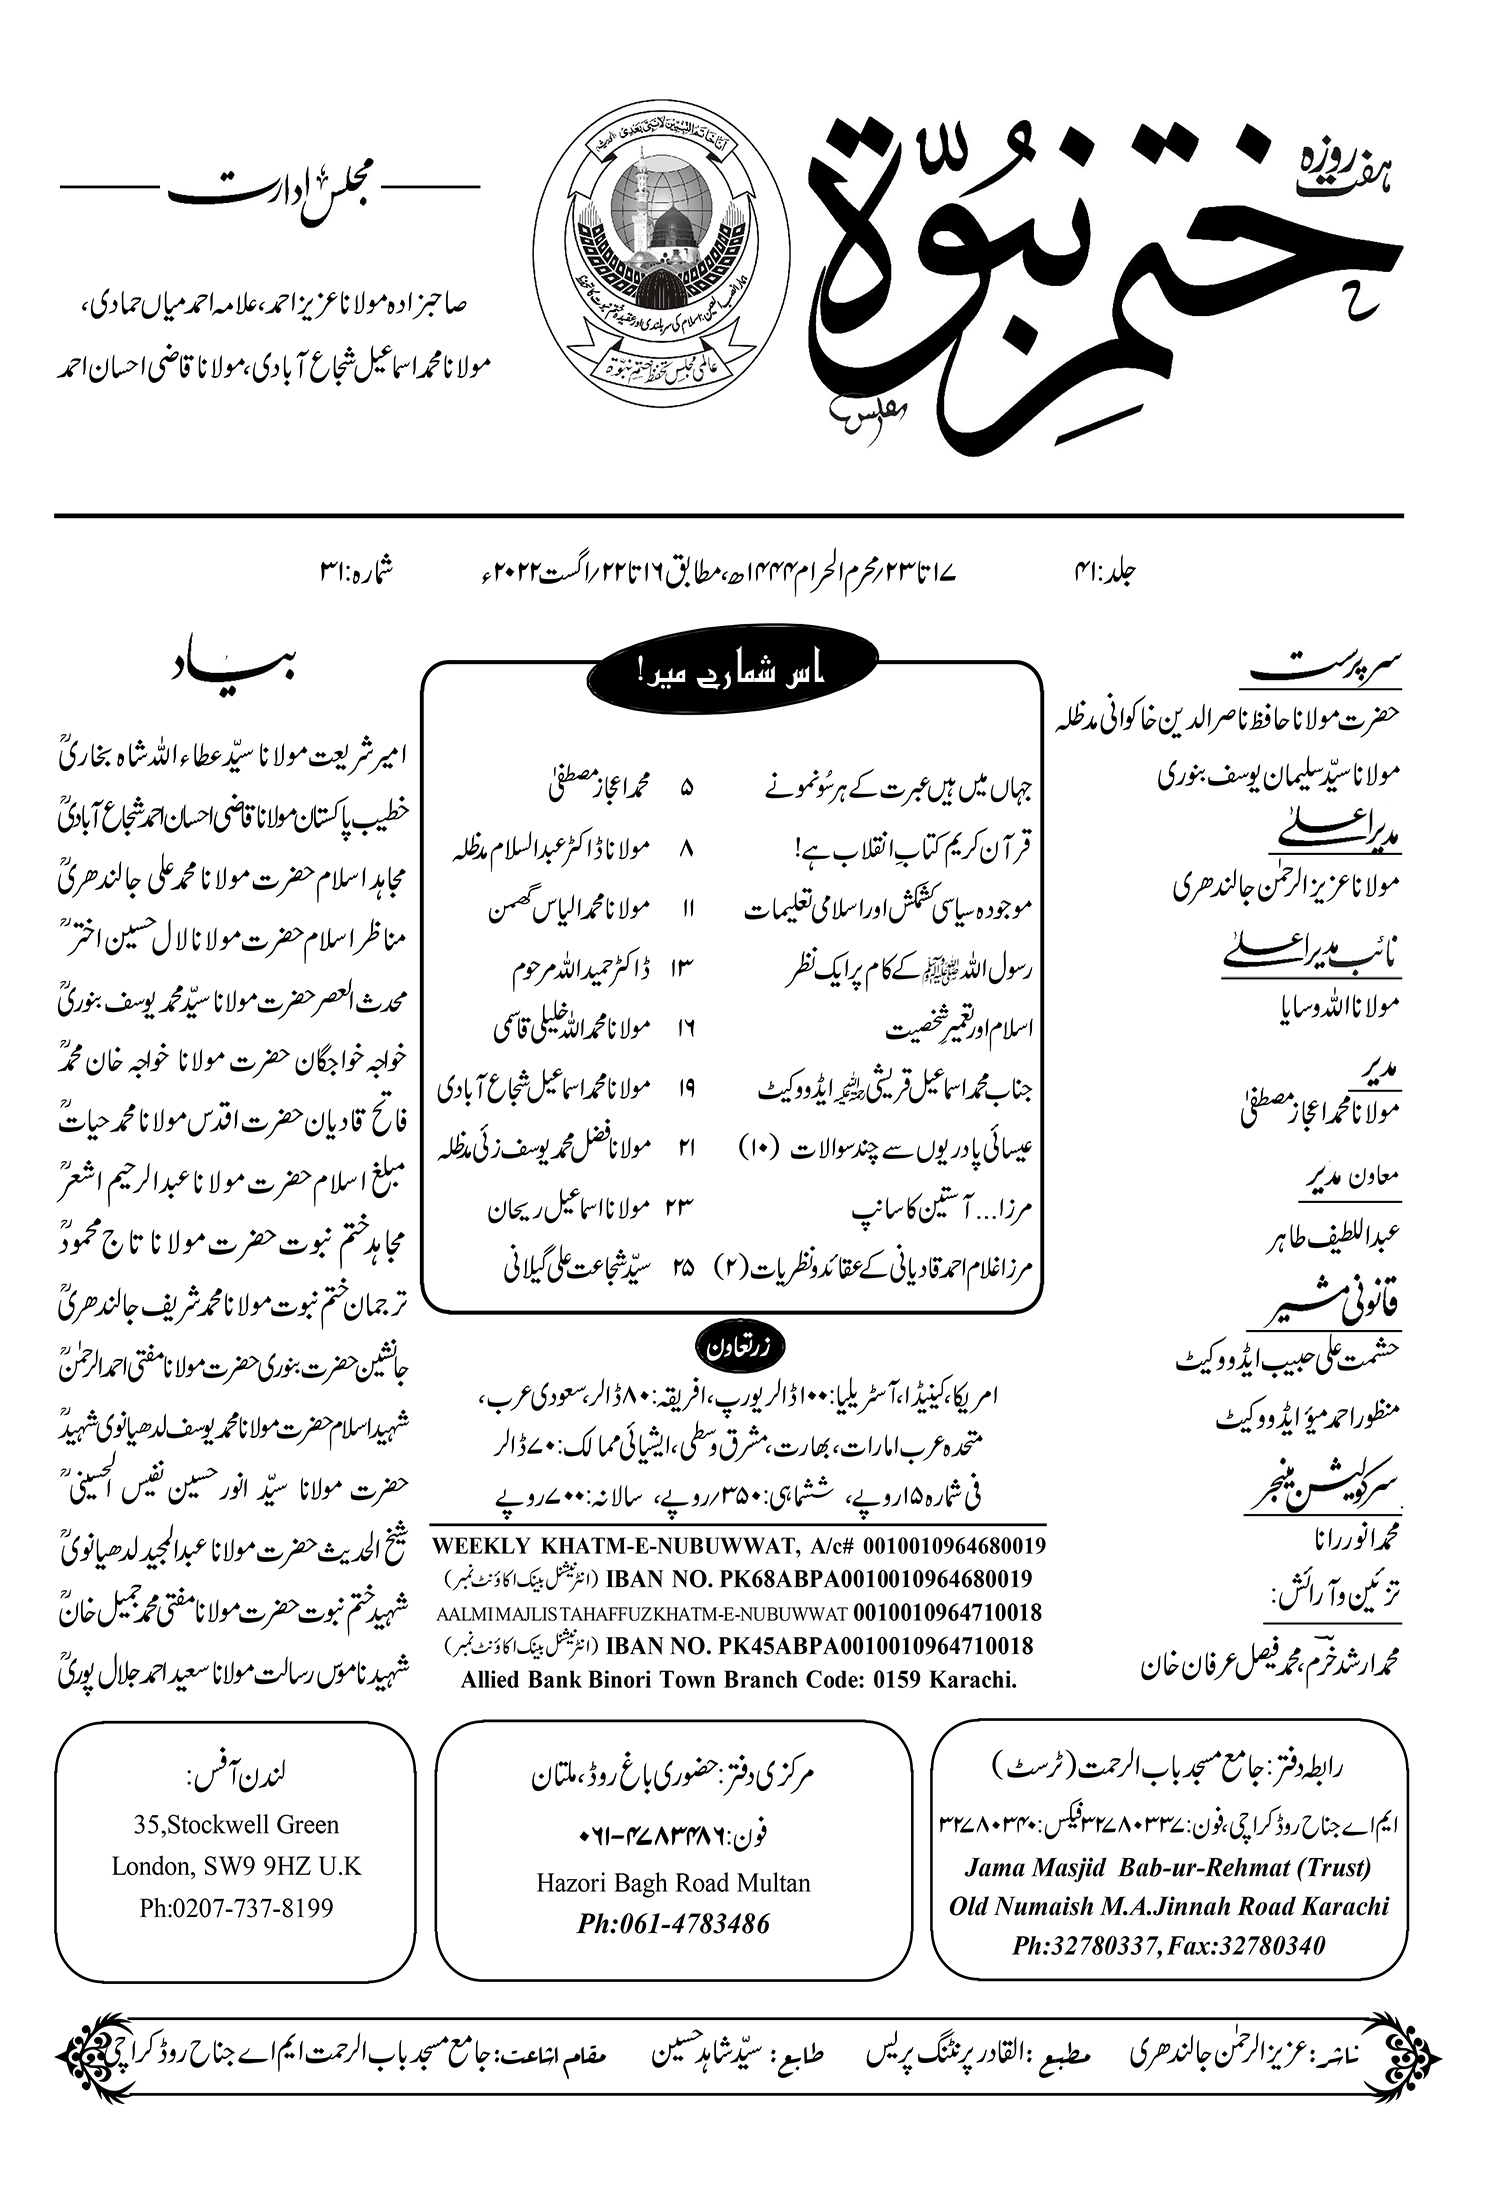 ہفت روزہ
ختم نبوّۃ
مجلس ادارت
صاحبزادہ مولانا عزیز احمد، علامہ احمد میاں حمادی،
مولانا محمد اسماعیل شجاع آبادی، مولانا قاضی احسان احمد
اَنَا خَاتَمُ النَّبِیّٖنَ لَا نَبِیَّ بَعْدِیْ
عالمی مجلس تحفظ ختم نبوّۃ
جلد: ۴۱
۱۷ تا ۲۳/ محرم الحرام ۱۴۴۴ھ، مطابق ۱۶ تا ۲۲/ اگست ۲۰۲۲ء
شمارہ: ۳۱
سرپرست
حضرت مولانا حافظ ناصر الدین خاکوانی مدظلہ
مولانا سیّد سلیمان یوسف بنوری
مدیر اعلےٰ
مولانا عزیز الرحمٰن جالندھری
نائب مدیر اعلےٰ
مولانا اللہ وسایا
مدیر
مولانا محمد اعجاز مصطفیٰ
معاون مدیر
عبداللطیف طاہر
قانونی مشیر
حشمت علی حبیب ایڈووکیٹ
منظور احمد میؤ ایڈووکیٹ
سرکولیشن مینجر
محمد انور رانا
تزئین و آرائش:
محمد ارشد خرم، محمد فیصل عرفان خان
اس شمارے میں!
جہاں میں ہیں عبرت کے ہر سُو نمونے ۵ محمد اعجاز مصطفیٰ
قرآن کریم کتابِ انقلاب ہے! ۸ مولانا ڈاکٹر عبدالسلام مدظلہ
موجودہ سیاسی کشمکش اور اسلامی تعلیمات ۱۱ مولانا محمد الیاس گھمن
رسول اللہ ﷺ کے کام پر ایک نظر ۱۳ ڈاکٹر حمید اللہ مرحوم
اسلام اور تعمیرِ شخصیت ۱۶ مولانا محمد اللہ خلیلی قاسمی
جناب محمد اسماعیل قریشی رحمہ اللہ ایڈووکیٹ ۱۹ مولانا محمد اسماعیل شجاع آبادی
عیسائی پادریوں سے چند سوالات (۱۰) ۲۱ مولانا فضل محمد یوسف زئی مدظلہ
مرزا... آستین کا سانپ ۲۳ مولانا اسماعیل ریحان
مرزا غلام احمد قادیانی کے عقائد و نظریات (۲) ۲۵ سیّد شجاعت علی گیلانی
زرتعاون
امریکا، کینیڈا، آسٹریلیا: ۱۰۰ ڈالر یورپ، افریقہ: ۸۰ ڈالر، سعودی عرب،
متحدہ عرب امارات، بھارت، مشرق وسطی، ایشیائی ممالک: ۷۰ ڈالر
فی شمارہ ۱۵ روپے، ششماہی: ۳۵۰/ روپے، سالانہ: ۷۰۰ روپے
WEEKLY KHATM-E-NUBUWWAT, A/c# 0010010964680019
IBAN NO. PK68ABPA0010010964680019 (انٹرنیشنل بینک اکاؤنٹ نمبر)
AALMI MAJLIS TAHAFFUZ KHATM-E-NUBUWWAT 0010010964710018
IBAN NO. PK45ABPA0010010964710018 (انٹرنیشنل بینک اکاؤنٹ نمبر)
Allied Bank Binori Town Branch Code: 0159 Karachi.
بیاد
امیر شریعت مولانا سیّد عطاء اللہ شاہ بخاریؒ
خطیب پاکستان مولانا قاضی احسان احمد شجاع آبادیؒ
مجاہد اسلام حضرت مولانا محمد علی جالندھریؒ
مناظر اسلام حضرت مولانا لال حسین اخترؒ
محدث العصر حضرت مولانا سیّد محمد یوسف بنوریؒ
خواجہ خواجگان حضرت مولانا خواجہ خان محمدؒ
فاتح قادیان حضرت اقدس مولانا محمد حیاتؒ
مبلغ اسلام حضرت مولانا عبدالرحیم اشعرؒ
مجاہد ختم نبوت حضرت مولانا تاج محمودؒ
ترجمان ختم نبوت مولانا محمد شریف جالندھریؒ
جانشین حضرت بنوری حضرت مولانا مفتی احمد الرحمٰنؒ
شہید اسلام حضرت مولانا محمد یوسف لدھیانوی شہیدؒ
حضرت مولانا سیّد انور حسین نفیس الحسینیؒ
شیخ الحدیث حضرت مولانا عبدالمجید لدھیانویؒ
شہید ختم نبوت حضرت مولانا مفتی محمد جمیل خانؒ
شہید ناموس رسالت مولانا سعید احمد جلال پوریؒ
رابطہ دفتر: جامع مسجد باب الرحمت (ٹرسٹ)
ایم اے جناح روڈ کراچی، فون: ۳۲۷۸۰۳۳۷ فیکس: ۳۲۷۸۰۳۴۰
Jama Masjid Bab-ur-Rehmat (Trust)
Old Numaish M.A.Jinnah Road Karachi
Ph:32780337, Fax:32780340
مرکزی دفتر: حضوری باغ روڈ، ملتان
فون: ۰۶۱-۴۷۸۳۴۸۶
Hazori Bagh Road Multan
Ph:061-4783486
لندن آفس:
35,Stockwell Green
London, SW9 9HZ U.K
Ph:0207-737-8199
ناشر: عزیز الرحمٰن جالندھری مطبع: القادر پرنٹنگ پریس طابع: سیّد شاہد حسین مقام اشاعت: جامع مسجد باب الرحمت ایم اے جناح روڈ کراچی